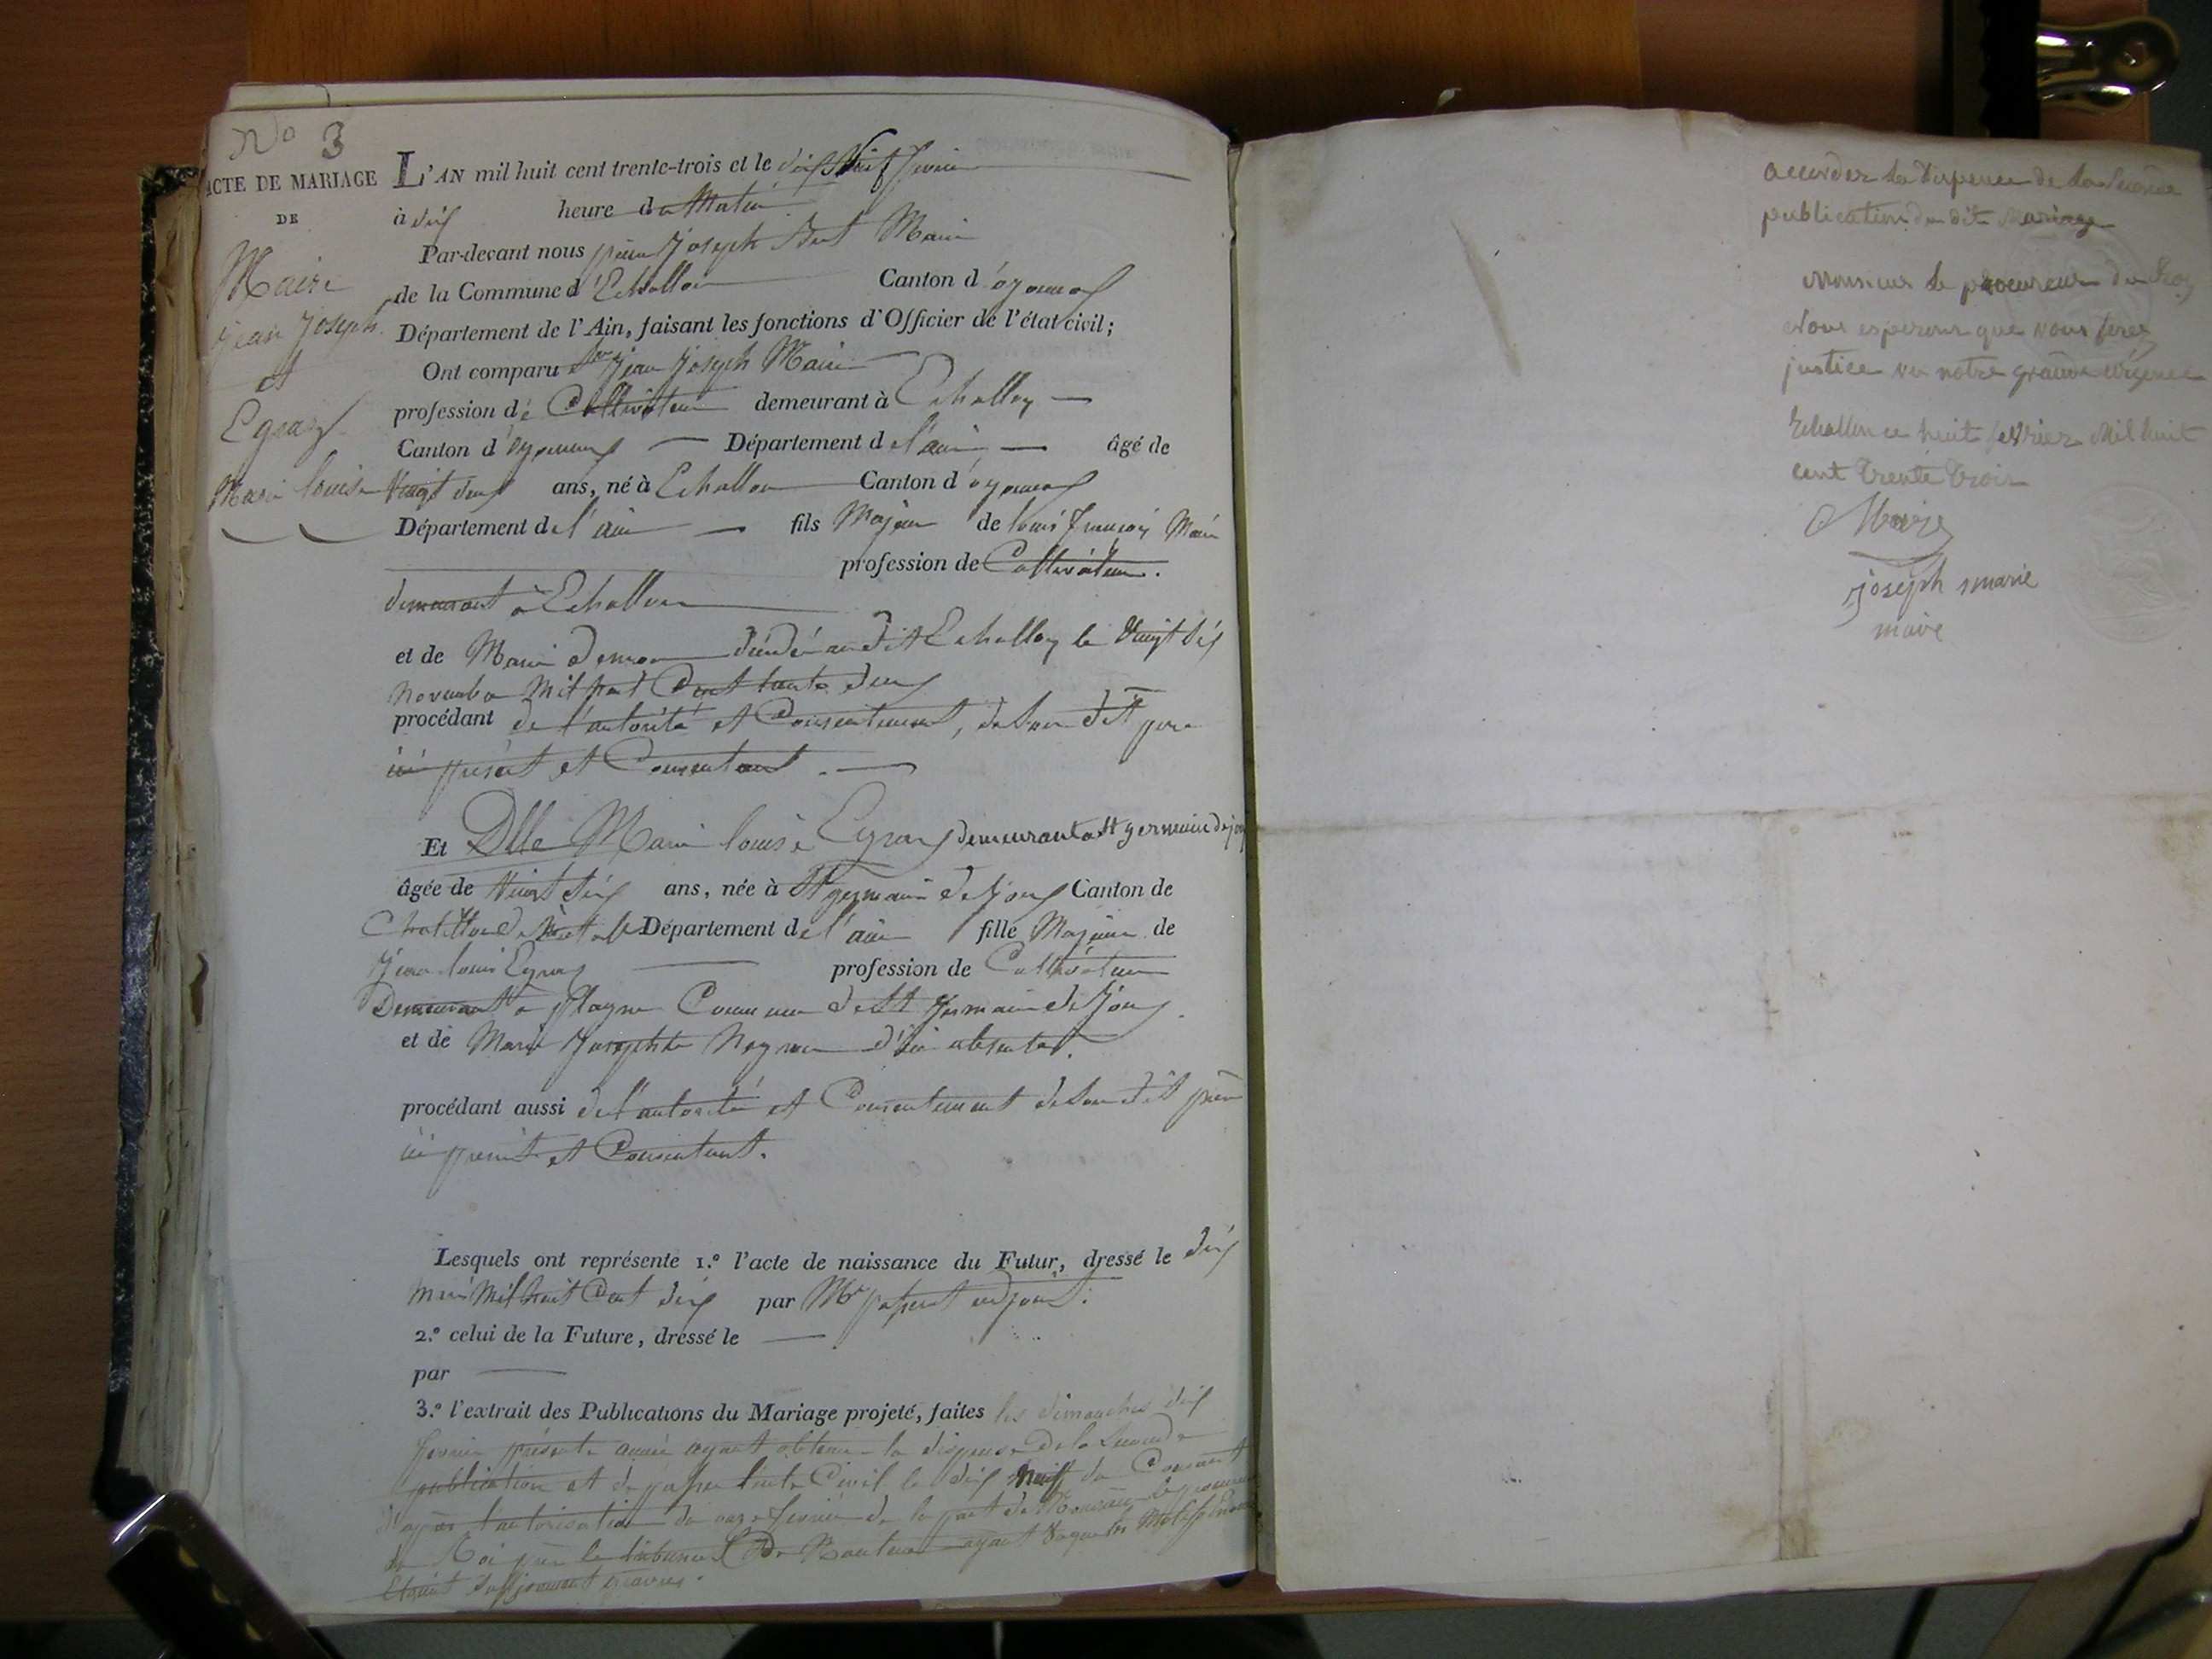 No 3
ACTE DE MARIAGE
DE
Maire
jean Joseph
et
Egraz
Marie louise
L'AN mil huit cent trente-trois et le dix Neuf fevrier
à dix heure du Matin
Par-devant nous pierre Joseph Maire
de la Commune d'Echallon Canton d'oyonnax
Département de l'Ain, faisant les fonctions d'Officier de l'état civil;
Ont comparu jean Joseph Maire
profession de Cultivateur demeurant à Echallon
Canton d'oyonnax Département de l'ain âgé de
Vingt deux ans, né à Echallon Canton d'oyonnax
Département de l'ain fils Majeur de louis françois Maire
profession de Cultivateur.
demeurant à Echallon
et de Marie décédée au dit Echallon le Vingt Six
novembre Mil huit Cent trente deux
procédant de l'autorité et Consentement, de Son dit pere
ici présent et Consentant.
Et Dlle Marie louise Egraz demeurant a St germain de joux
âgée de Vingt Six ans, née à St germain de Joux Canton de
Chatillon de Département de l'ain fille Majeure de
Jean louis Egraz profession de Cultivateur
Demeurant a plagne Commune de St Germain de Joux.
et de Marie Josephte d'ici absente.
procédant aussi de l'autorité et Consentement de Son dit père
ici present et Consentant.
Lesquels ont représente 1.º l'acte de naissance du Futur, dressé le dix
Mil huit Cent dix par Mr adjoint.
2.º celui de la Future, dressé le
par
3.º l'extrait des Publications du Mariage projeté, faites les dimanches dix
fevrier présente année ayant obtenu la dispense de la Seconde
publication et de passer l'acte Civil le dix Neuf du Courant
d'apres l'autorisation du onze fevrier de la part de Monsieur le procureur
du Roi près le tribunal De Nantua ayant
étaient Suffisament graves.
accorder la dispence de la Seconde
publication du dit Mariage
Monsieur le procureur du Roy
Nous esperons que vous ferez
justice vu notre grande urgence
Echallon ce huit fevrier Mil huit
cent trente trois
Maire
joseph marie
maire